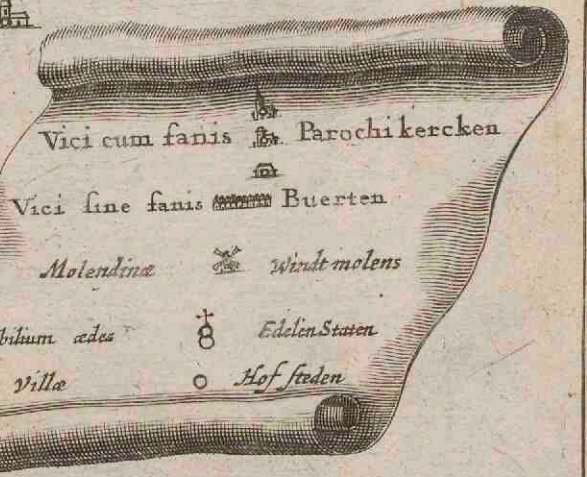 Vici cum fanis Parochi kercken
Vici sine fanis Buerten
Molendinæ Windt molens
bilium ædes Edelen Staten
Villæ Hof steden